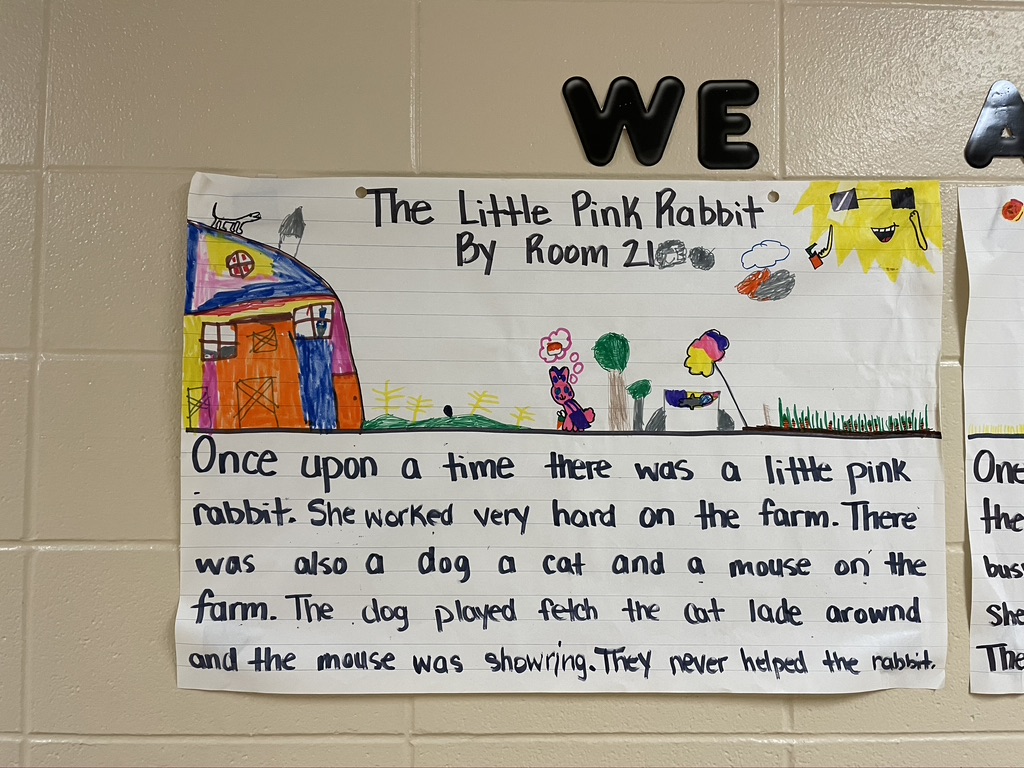 WE A
The Little Pink Rabbit
By Room 21
Once upon a time there was a little pink
rabbit. She worked very hard on the farm. There
was also a dog a cat and a mouse on the
farm. The dog played fetch the cat lade arownd
and the mouse was showring. They never helped the rabbit.
One
the
bus
she
The